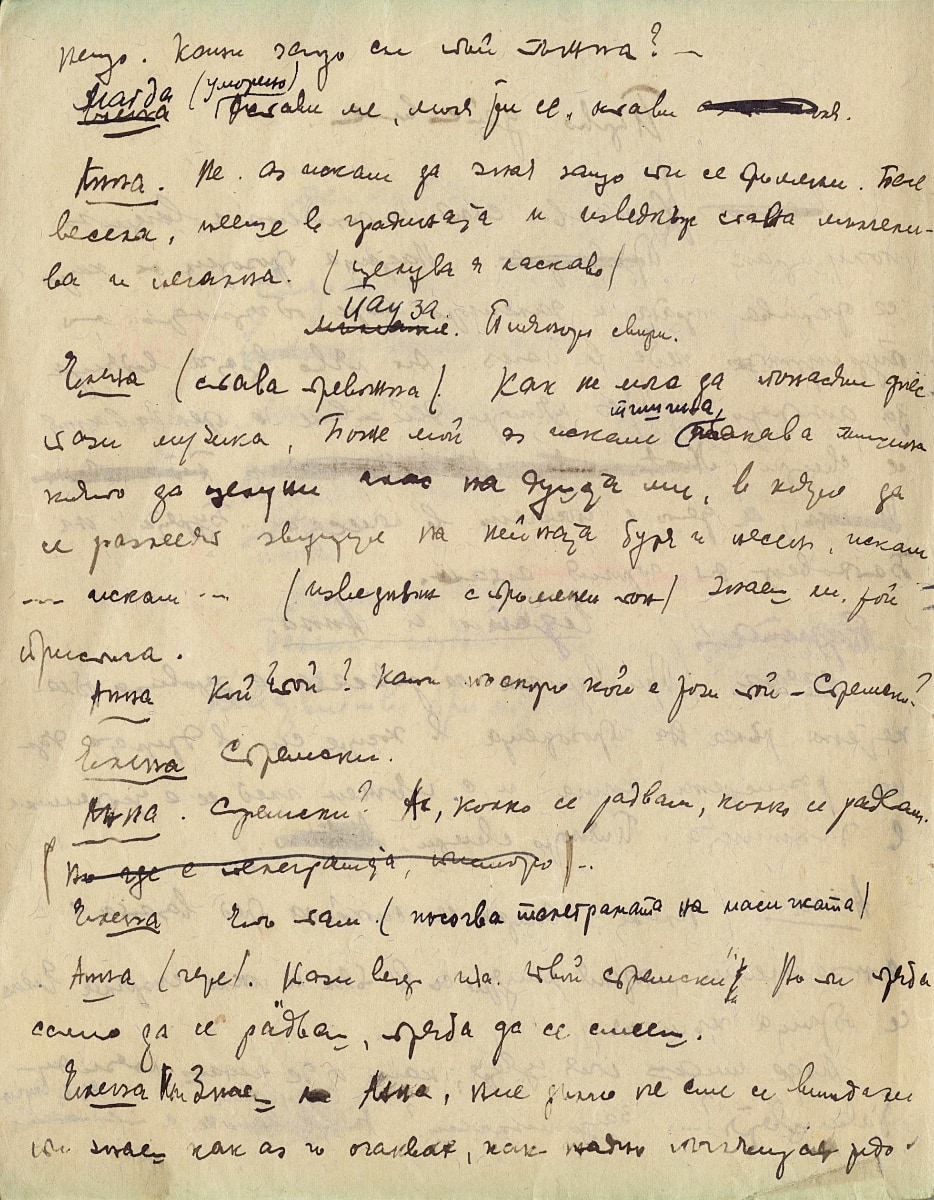 нещо. Кажи защо си тъй тъжна? —
Магда (уморено) Остави ме, моля ти се, остави
Анна. Не. аз искам да зная защо ти се промени. Беше
весела, пееше в градината и изведнъж стана мълчели-
ва и печална. (целува я ласкаво)
Пауза. Пианото свири.
Елена (става тревожна). Как не мога да понасям днес
тази музика, Боже мой аз искам тишина, такава тишина
която да целуни на душата ми, в която да
се разнесят звуците на нейната буря и песен, искам
--- искам --- (изведнъж с променен тон) Знаеш ли. той
пристига.
Анна Кой той? Кажи по скоро кой е този той – Стремски?
Елена Стремски.
Анна. Стремски? Ах, колко се радвам, колко се радвам.
(Но где е телеграмата, писмото) –.
Елена Ето там. (посочва телеграмата на масичката)
Анна (чете). твой Стремски" Но ти трябва
само да се радваш, трябва да се смееш.
Елена Знаеш Анна, ние не сме се виждали
ти знаеш как аз го очаквах, как